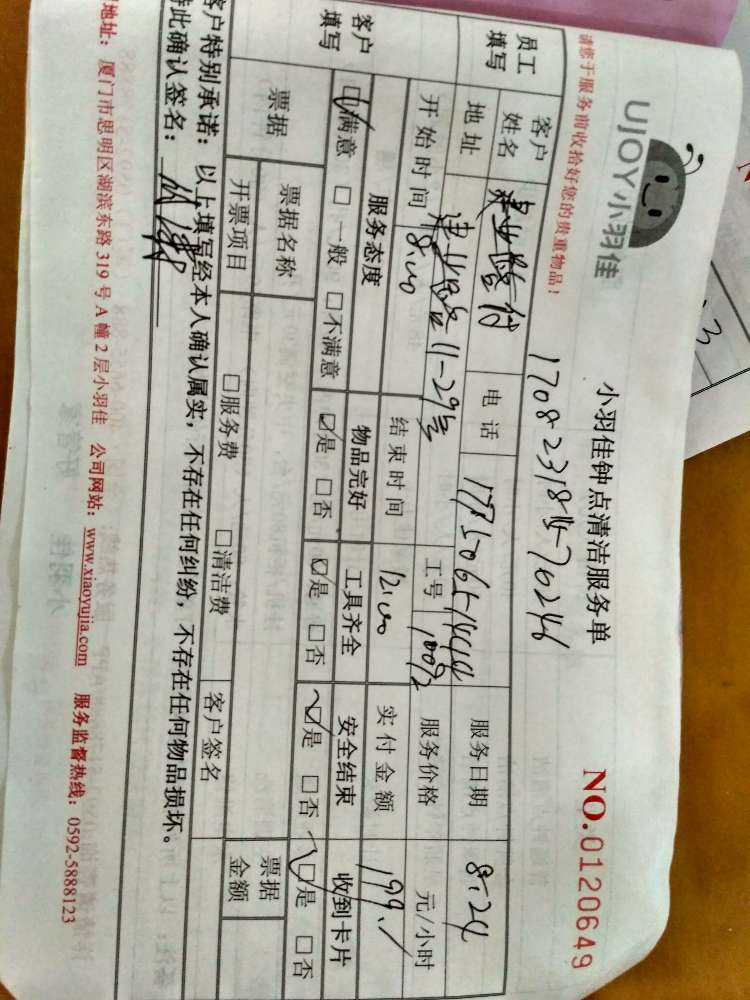 UJOY小羽佳
小羽佳钟点清洁服务单
NO.0120649
请您于服务前收拾好您的贵重物品！
员工填写
客户姓名 电话 服务日期 8.24
地址 工号 服务价格 元/小时
开始时间 8:00 结束时间 12:00 实付金额 199.1
客户填写
服务态度 物品完好 工具齐全 安全结束 收到卡片
☑满意 □一般 □不满意 ☑是 □否 ☑是 □否 ☑是 □否 ☑是 □否
票据 票据名称 客户签名 票据金额
开票项目 □服务费 □清洁费
客户特别承诺：以上填写经本人确认属实，不存在任何纠纷，不存在任何物品损坏。
特此确认签名：
地址：厦门市思明区湖滨东路319号A幢2层小羽佳 公司网站：www.xiaoyujia.com 服务监督热线：0592-5888123